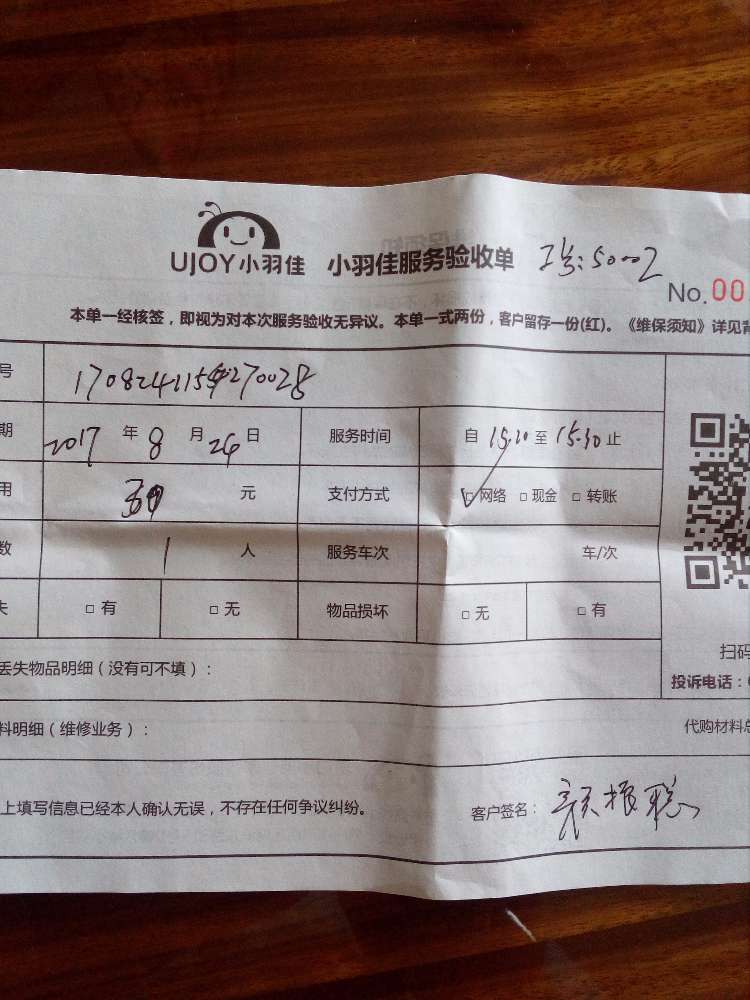 UJOY小羽佳 小羽佳服务验收单 工号:50002
No.00
本单一经核签，即视为对本次服务验收无异议。本单一式两份，客户留存一份(红)。《维保须知》详见背
号
期 2017 年 8 月 24 日 服务时间 自 15.20 至 15.30 止
用 30 元 支付方式 ☑ 网络 □ 现金 □ 转账
数 1 人 服务车次 车/次
失 □ 有 □ 无 物品损坏 □ 无 □ 有
扫码
丢失物品明细（没有可不填）：
投诉电话：
料明细（维修业务）： 代购材料总
上填写信息已经本人确认无误，不存在任何争议纠纷。 客户签名：